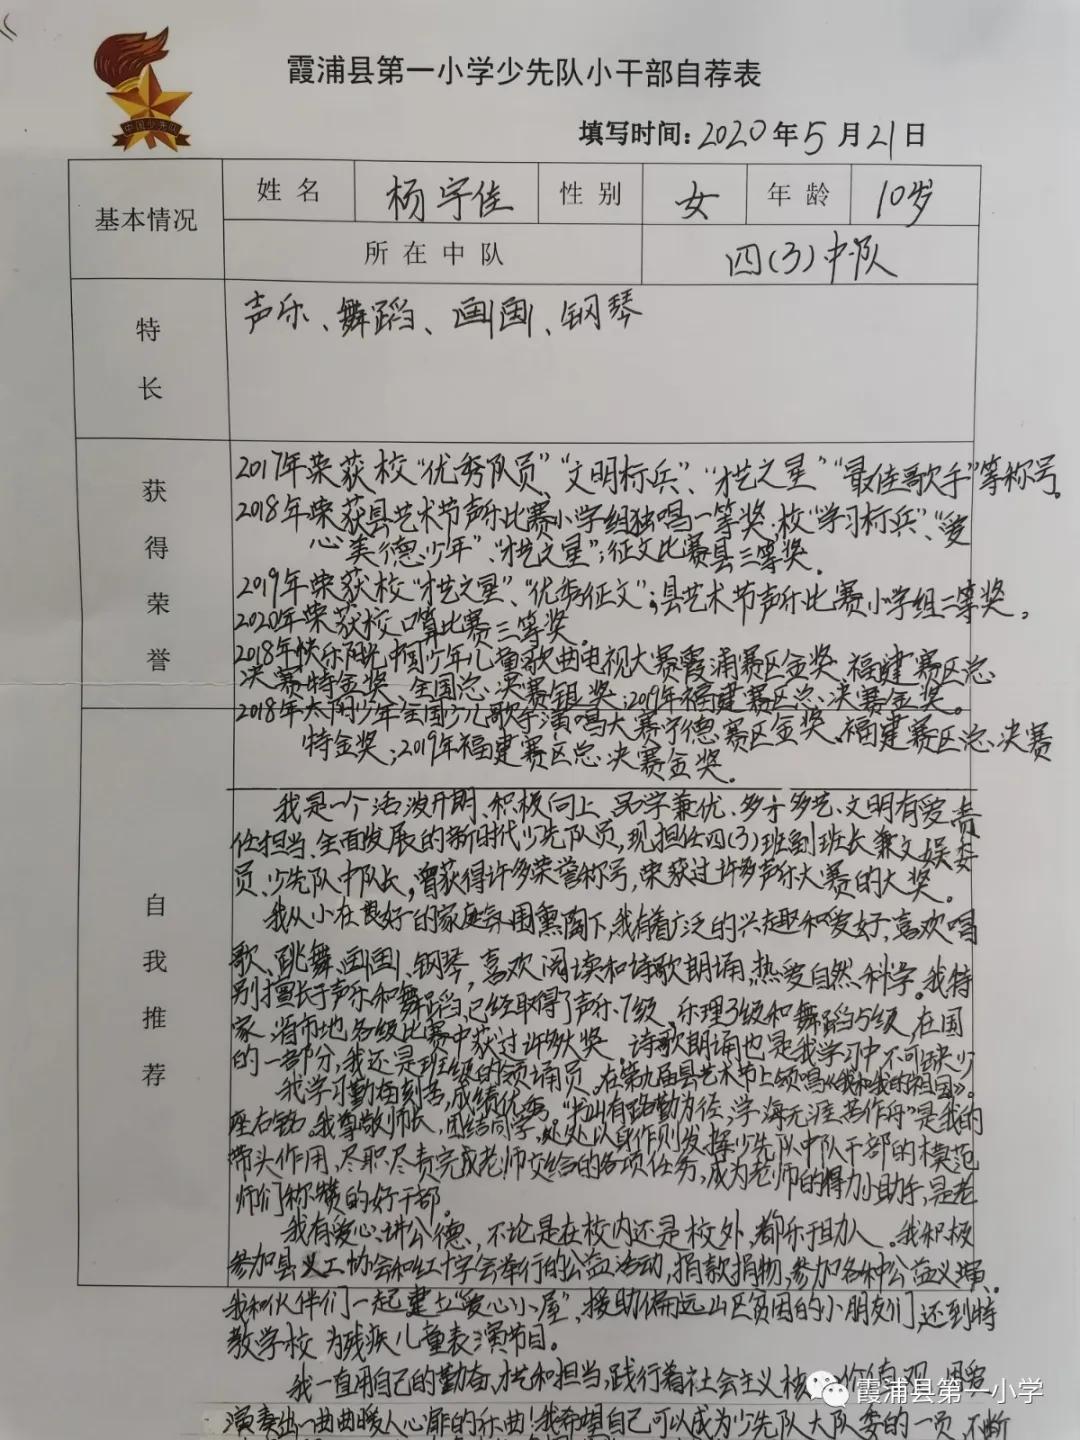 中国少先队
霞浦县第一小学少先队小干部自荐表
填写时间：2020年5月21日
基本情况
姓名 杨宇佳 性别 女 年龄 10岁
所在中队 四(3)中队
特长
声乐、舞蹈、画画、钢琴
获得荣誉
2017年荣获校“优秀队员”、“文明标兵”、“才艺之星”“最佳歌手”等称号。
2018年荣获县艺术节声乐比赛小学组独唱一等奖；校“学习标兵”、“爱
心美德少年”、“才艺之星”；征文比赛县三等奖。
2019年荣获校“才艺之星”、“优秀征文”；县艺术节声乐比赛小学组二等奖。
2020年荣获校口算比赛三等奖。
2018年快乐阳光中国少年儿童歌曲电视大赛霞浦赛区金奖、福建赛区总
决赛特金奖、全国总决赛银奖；2019年福建赛区总决赛金奖。
2018年太阳少年全国少儿歌手演唱大赛宁德赛区金奖、福建赛区总决赛
特金奖；2019年福建赛区总决赛金奖。
自我推荐
我是一个活波开朗、积极向上、品学兼优、多才多艺、文明有爱、责
任担当、全面发展的新时代少先队员，现担任四(3)班副班长兼文娱委
员、少先队中队长，曾获得许多荣誉称号，荣获过许多声乐大赛的大奖。
我从小在良好的家庭氛围熏陶下，我有着广泛的兴趣和爱好，喜欢唱
歌、跳舞、画画、钢琴，喜欢阅读和诗歌朗诵，热爱自然、科学。我特
别擅长于声乐和舞蹈，已经取得了声乐7级、乐理3级和舞蹈5级，在国
家、省市地各级比赛中获过许多大奖。诗歌朗诵也是我学习中不可缺少
的一部分，我还是班级的领诵员，在第九届县艺术节上领唱《我和我的祖国》。
我学习勤奋刻苦，成绩优秀，“书山有路勤为径，学海无涯苦作舟”是我的
座右铭。我尊敬师长，团结同学，处处以身作则，发挥少先队中队干部的模范
带头作用，尽职尽责完成老师交给的各项任务，成为老师的得力小助手，是老
师们称赞的好干部。
我有爱心、讲公德，不论是在校内还是校外，都乐于助人。我积极
参加县义工协会和红十字会举行的公益活动，捐款捐物，参加各种公益义演。
我和伙伴们一起建立“爱心小屋”，援助偏远山区贫困的小朋友们，还到特
教学校为残疾儿童表演节目。
我一直用自己的勤奋、才艺和担当，践行着社会主义核心价值观，用爱
演奏出一曲曲暖人心扉的乐曲！我希望自己可以成为少先队大队委的一员，不断
霞浦县第一小学